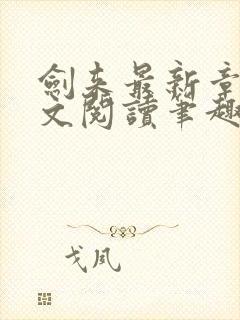 劍来最新章
文閱讀筆趣
戈風